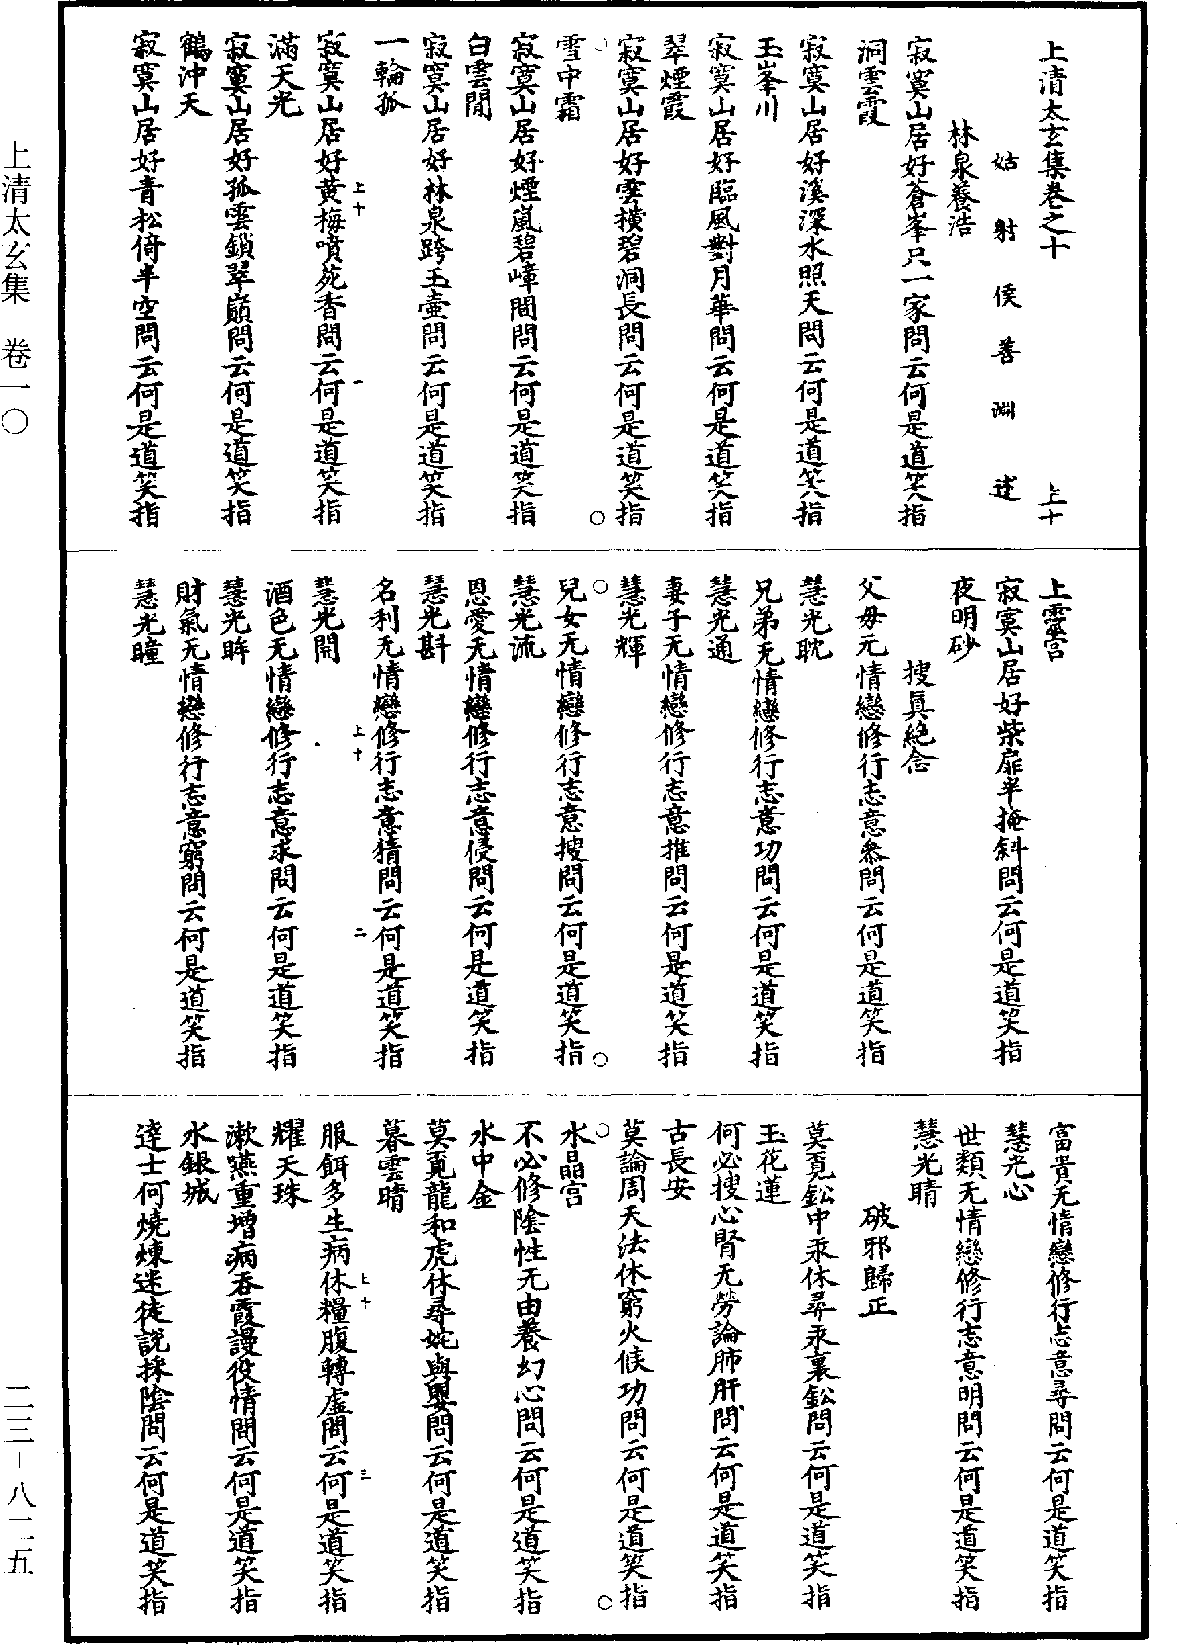 上清太玄集卷之十　上十
姑射侯善淵述
林泉養浩
寂寞山居好蒼峯只一家問云何是道笑指
洞雲霞
寂寞山居好溪深水照天問云何是道笑指
玉峯川
寂寞山居好臨風對月華問云何是道笑指
翠煙霞
寂寞山居好雲橫碧洞長問云何是道笑指
雪中霜
寂寞山居好煙嵐碧嶂間問云何是道笑指
白雲閒
寂寞山居好林泉跨玉壷問云何是道笑指
一輪孤
寂寞山居好黄梅噴苑香問云何是道笑指
滿天光
寂寞山居好孤雲鎖翠巔問云何是道笑指
鶴沖天
寂寞山居好青松倚半空問云何是道笑指
上靈宫
寂寞山居好柴扉半掩斜問云何是道笑指
夜明砂
搜真絶念
父母无情戀修行志意叅問云何是道笑指
慧光耽
兄弟无情戀修行志意功問云何是道笑指
慧光通
妻子无情戀修行志意推問云何是道笑指
慧光輝
兒女无情戀修行志意搜問云何是道笑指
慧光流
恩愛无情戀修行志意侵問云何是道笑指
慧光斟
名利无情戀修行志意猜問云何是道笑指
慧光開
酒色无情戀修行志意求問云何是道笑指
慧光眸
財氣无情戀修行志意窮問云何是道笑指
慧光瞳
富貴无情戀修行志意尋問云何是道笑指
慧光心
世類无情戀修行志意明問云何是道笑指
慧光睛
破邪歸正
莫覓鈆中汞休尋汞裏鈆問云何是道笑指
玉花蓮
何必搜心腎无勞論肺肝問云何是道笑指
古長安
莫論周天法休窮火候功問云何是道笑指
水晶宫
不必修陰性无由養幻心問云何是道笑指
水中金
莫覓龍和虎休尋姹與嬰問云何是道笑指
暮雲晴
服餌多生病休糧腹轉虛問云何是道笑指
耀天珠
漱嚥重增病吞霞謾役情問云何是道笑指
水銀城
達士何燒煉迷徒説採陰問云何是道笑指
上十　一
上十　二
上十　三
上清太玄集　卷一〇
二三－八二五